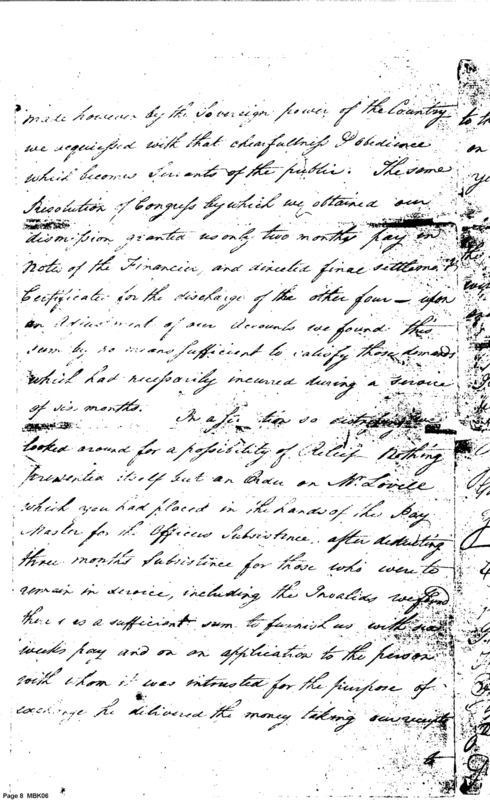 made however by the Sovereign power of the Country
we acquiessed with that chearfullness & obedience
which becomes Servants of the public. The same
Resolution of Congress by which we obtained our
dismission granted us only two months pay in
Notes of the Financier, and directed final settlement
Certificates for the discharge of the other four — upon
an Adjustment of our Accounts we found this
sum by no means sufficient to satisfy those demands
which had necessarily incurred during a service
of six months. In a so
looked around for a possibility of Relief. Nothing
presented itself but an Order on Mr. Lovell
which you had placed in the hands of the Pay
Master for the Officers Subsistence. after deducting
three months Subsistence for those who were to
remain in service, including the Invalids we found
there was a sufficient sum to furnish us with six
weeks pay and on an application to the person
with whom it was intrusted for the purpose of
exchange he delivered the money taking our receipts
Page 8 MBK06